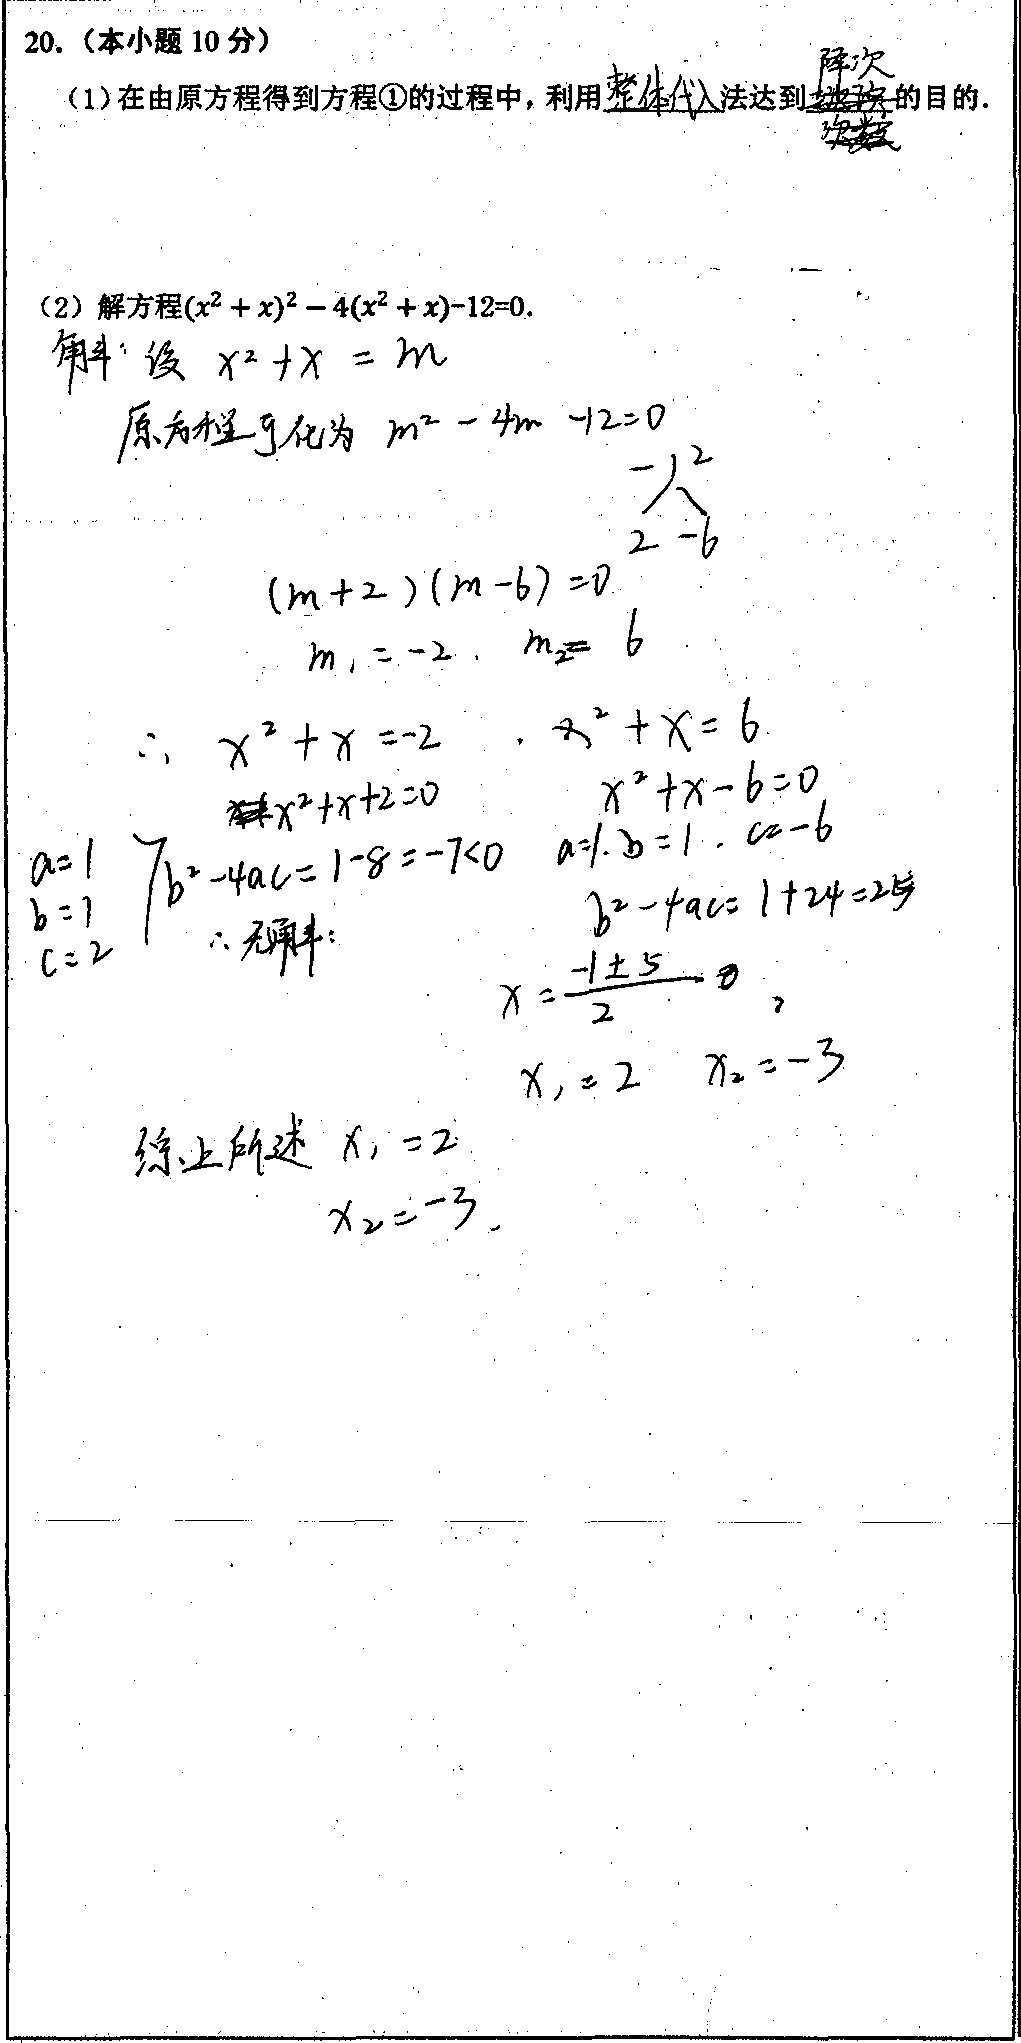 20.（本小题 10 分）
（1）在由原方程得到方程①的过程中，利用整体代入法达到降次的目的.
（2）解方程(x² + x)² − 4(x² + x)-12=0.
解：设 x² + x = m
原方程可化为 m² - 4m -12=0
-12
2 -6
(m+2)(m-6)=0
m₁=-2. m₂= 6
∴ x² + x =-2 . x² + x = 6
x²+x+2=0 x²+x-6=0
a=1 b²-4ac=1-8=-7<0 a=1.b=1.c=-6
b=1 b²-4ac=1+24=25
c=2 ∴无解：
x=(-1±5)/2
x₁=2 x₂=-3
综上所述 x₁=2
x₂=-3.